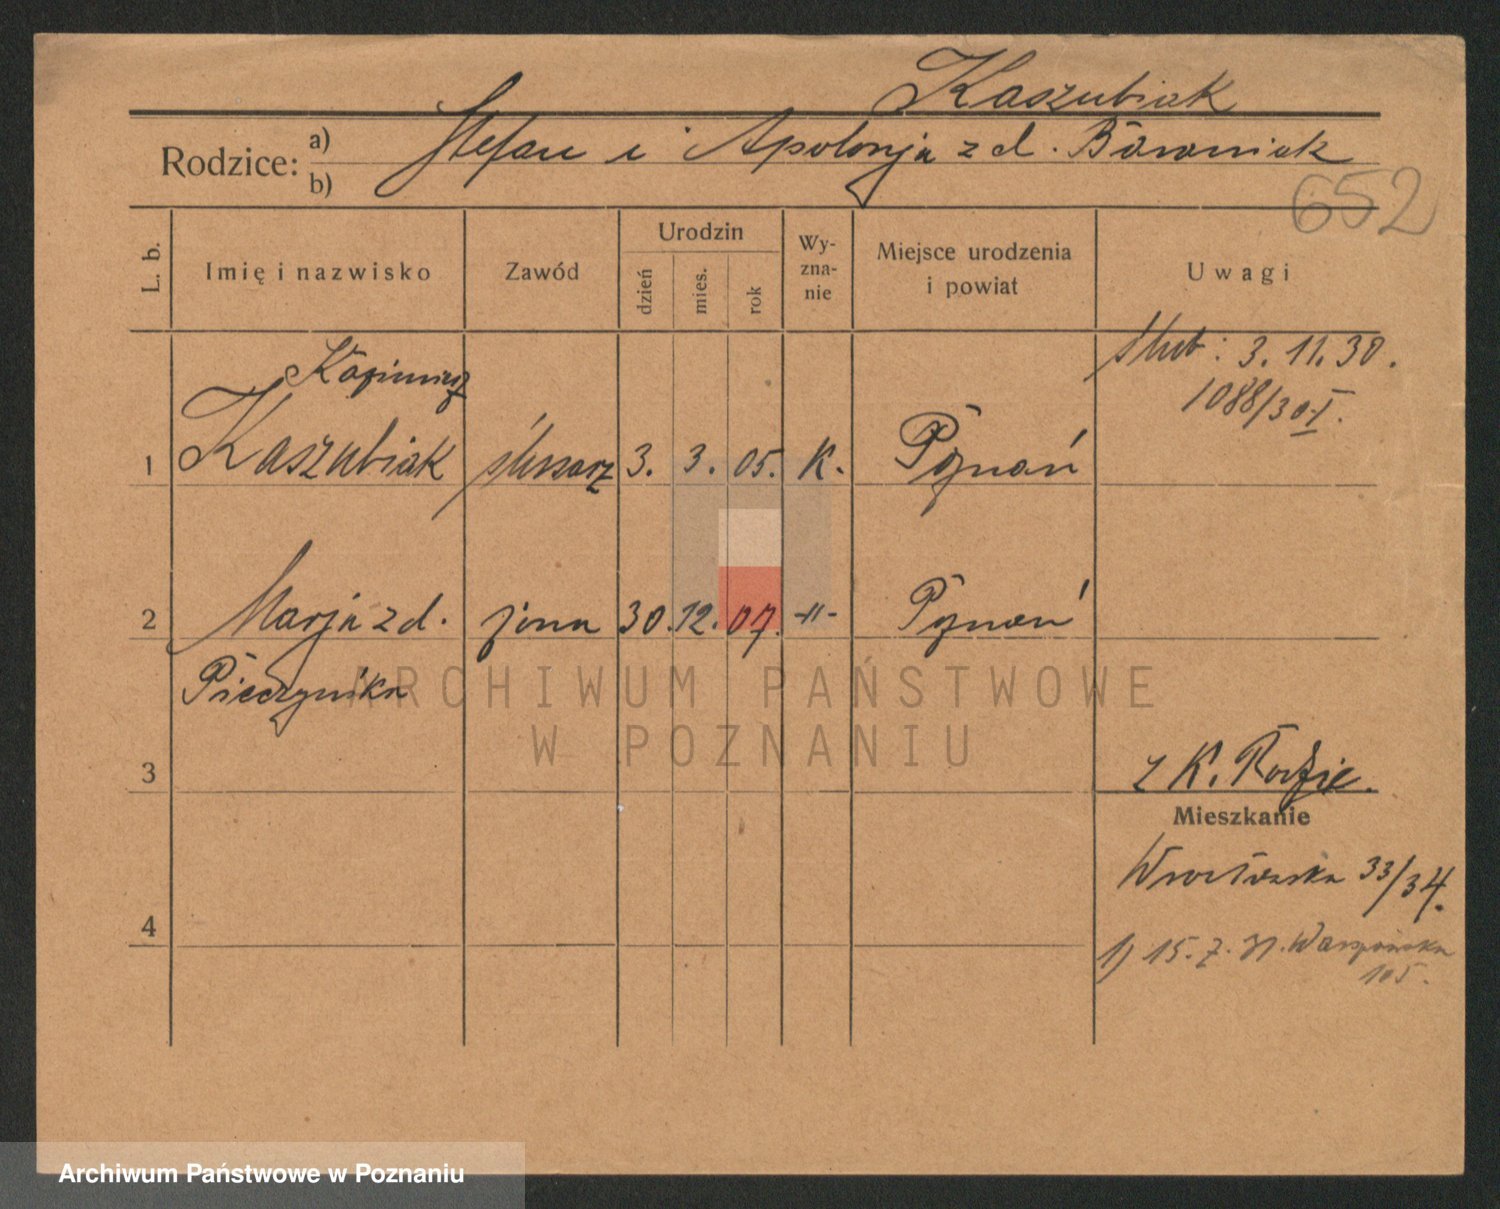 Kaszubiak
Rodzice: a) Stefan i Apolonja z d. Baraniak
b)
652
L. b. Imię i nazwisko Zawód Urodzin dzień mies. rok Wyzna-nie Miejsce urodzenia i powiat Uwagi
ślub: 3. 11. 30.
1088/30-I.
Kazimierz
1 Kaszubiak ślusarz 3. 3. 05. K. Poznań
2 Marja z d. żona 30. 12. 07. -"- Poznań
Pieczyńska
ARCHIWUM PAŃSTWOWE
W POZNANIU
3
z K. Rodzic.
Mieszkanie
Wrocławska 33/34.
4
1) 15. 7. 31.
105.
Archiwum Państwowe w Poznaniu